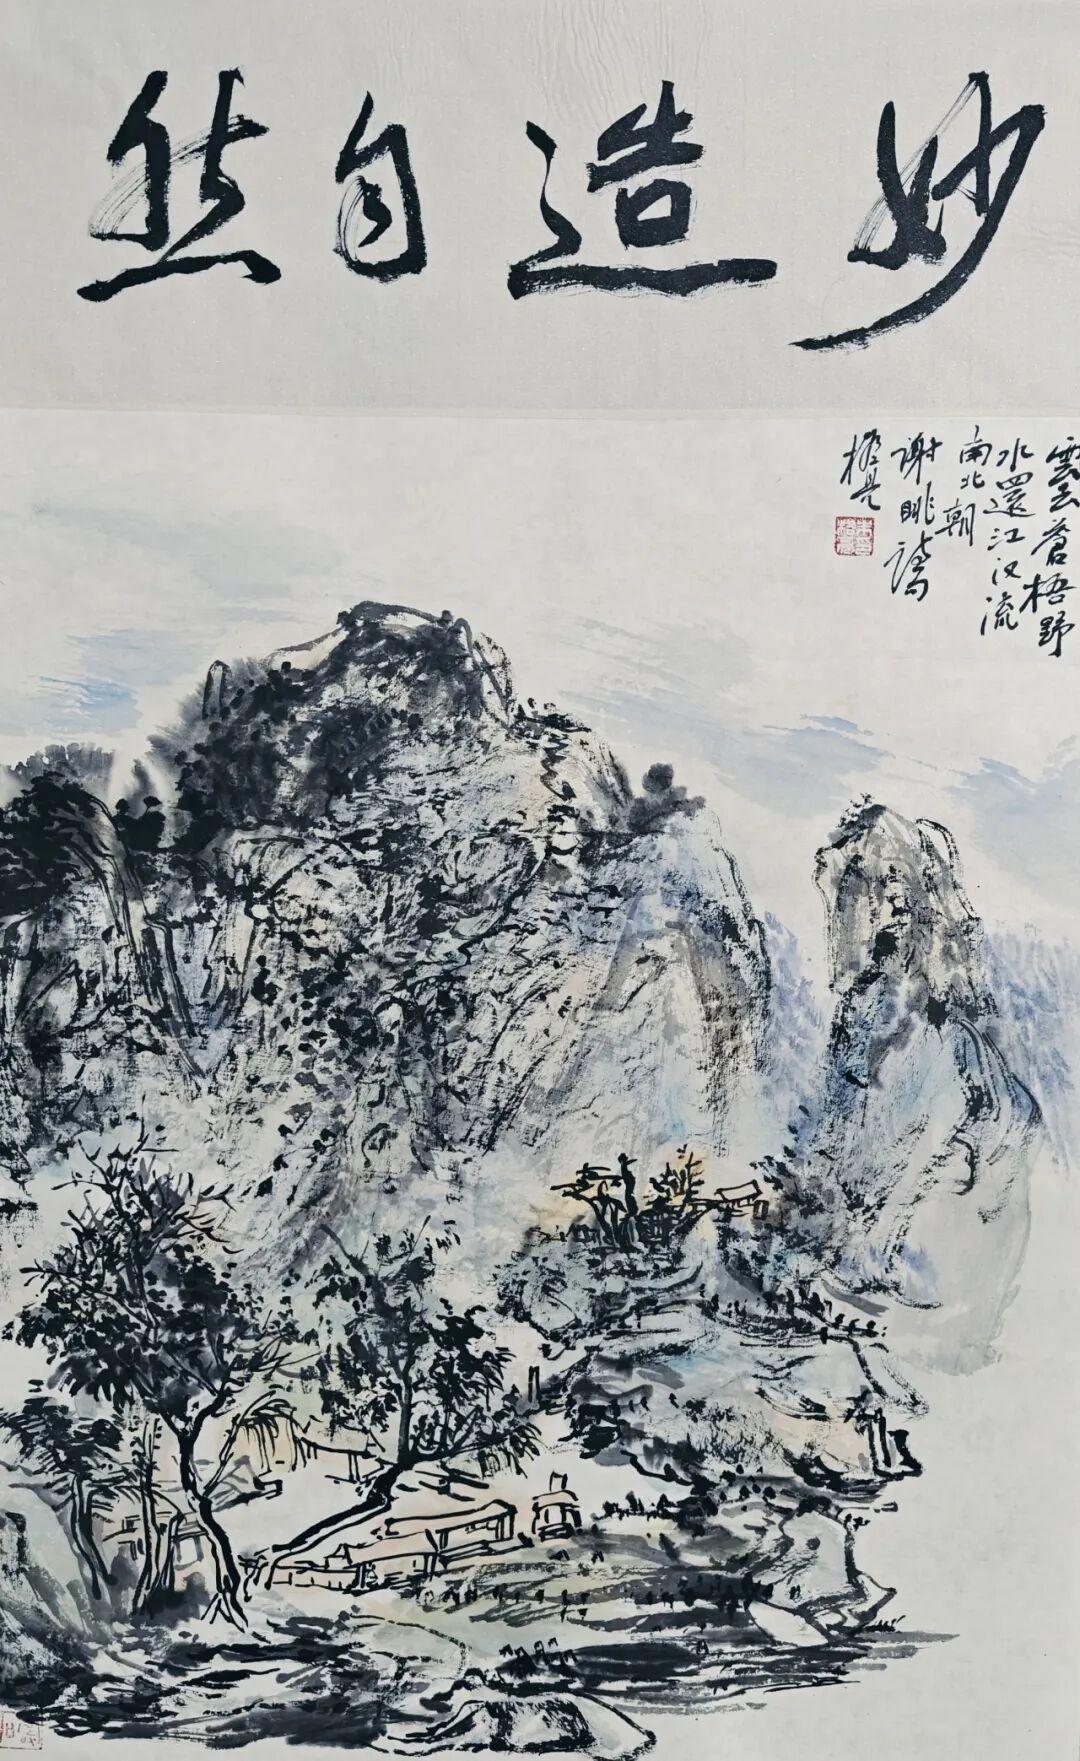 妙造自然
雲去蒼梧野
水還江汉流
南北朝
谢眺詩